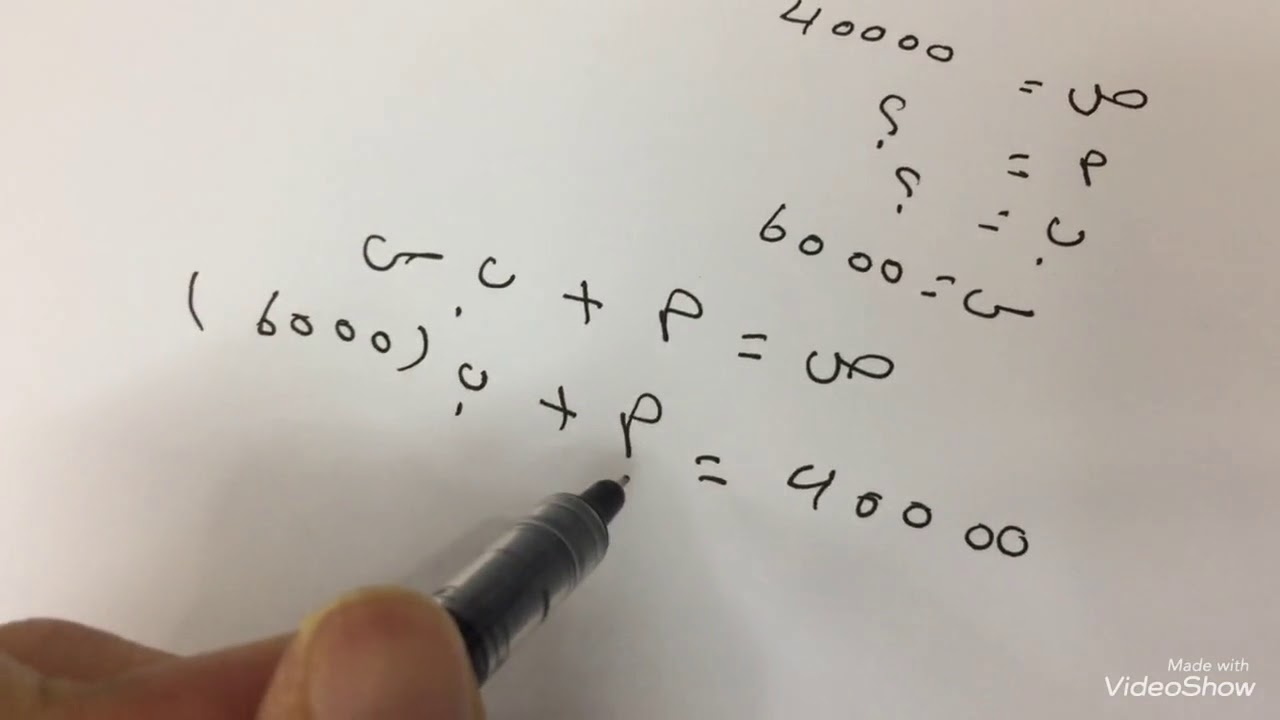 ص = 40000
أ = ؟
ب = ؟
س = 6000
ص = أ + ب س
40000 = أ + ب (6000)
Made with
VideoShow